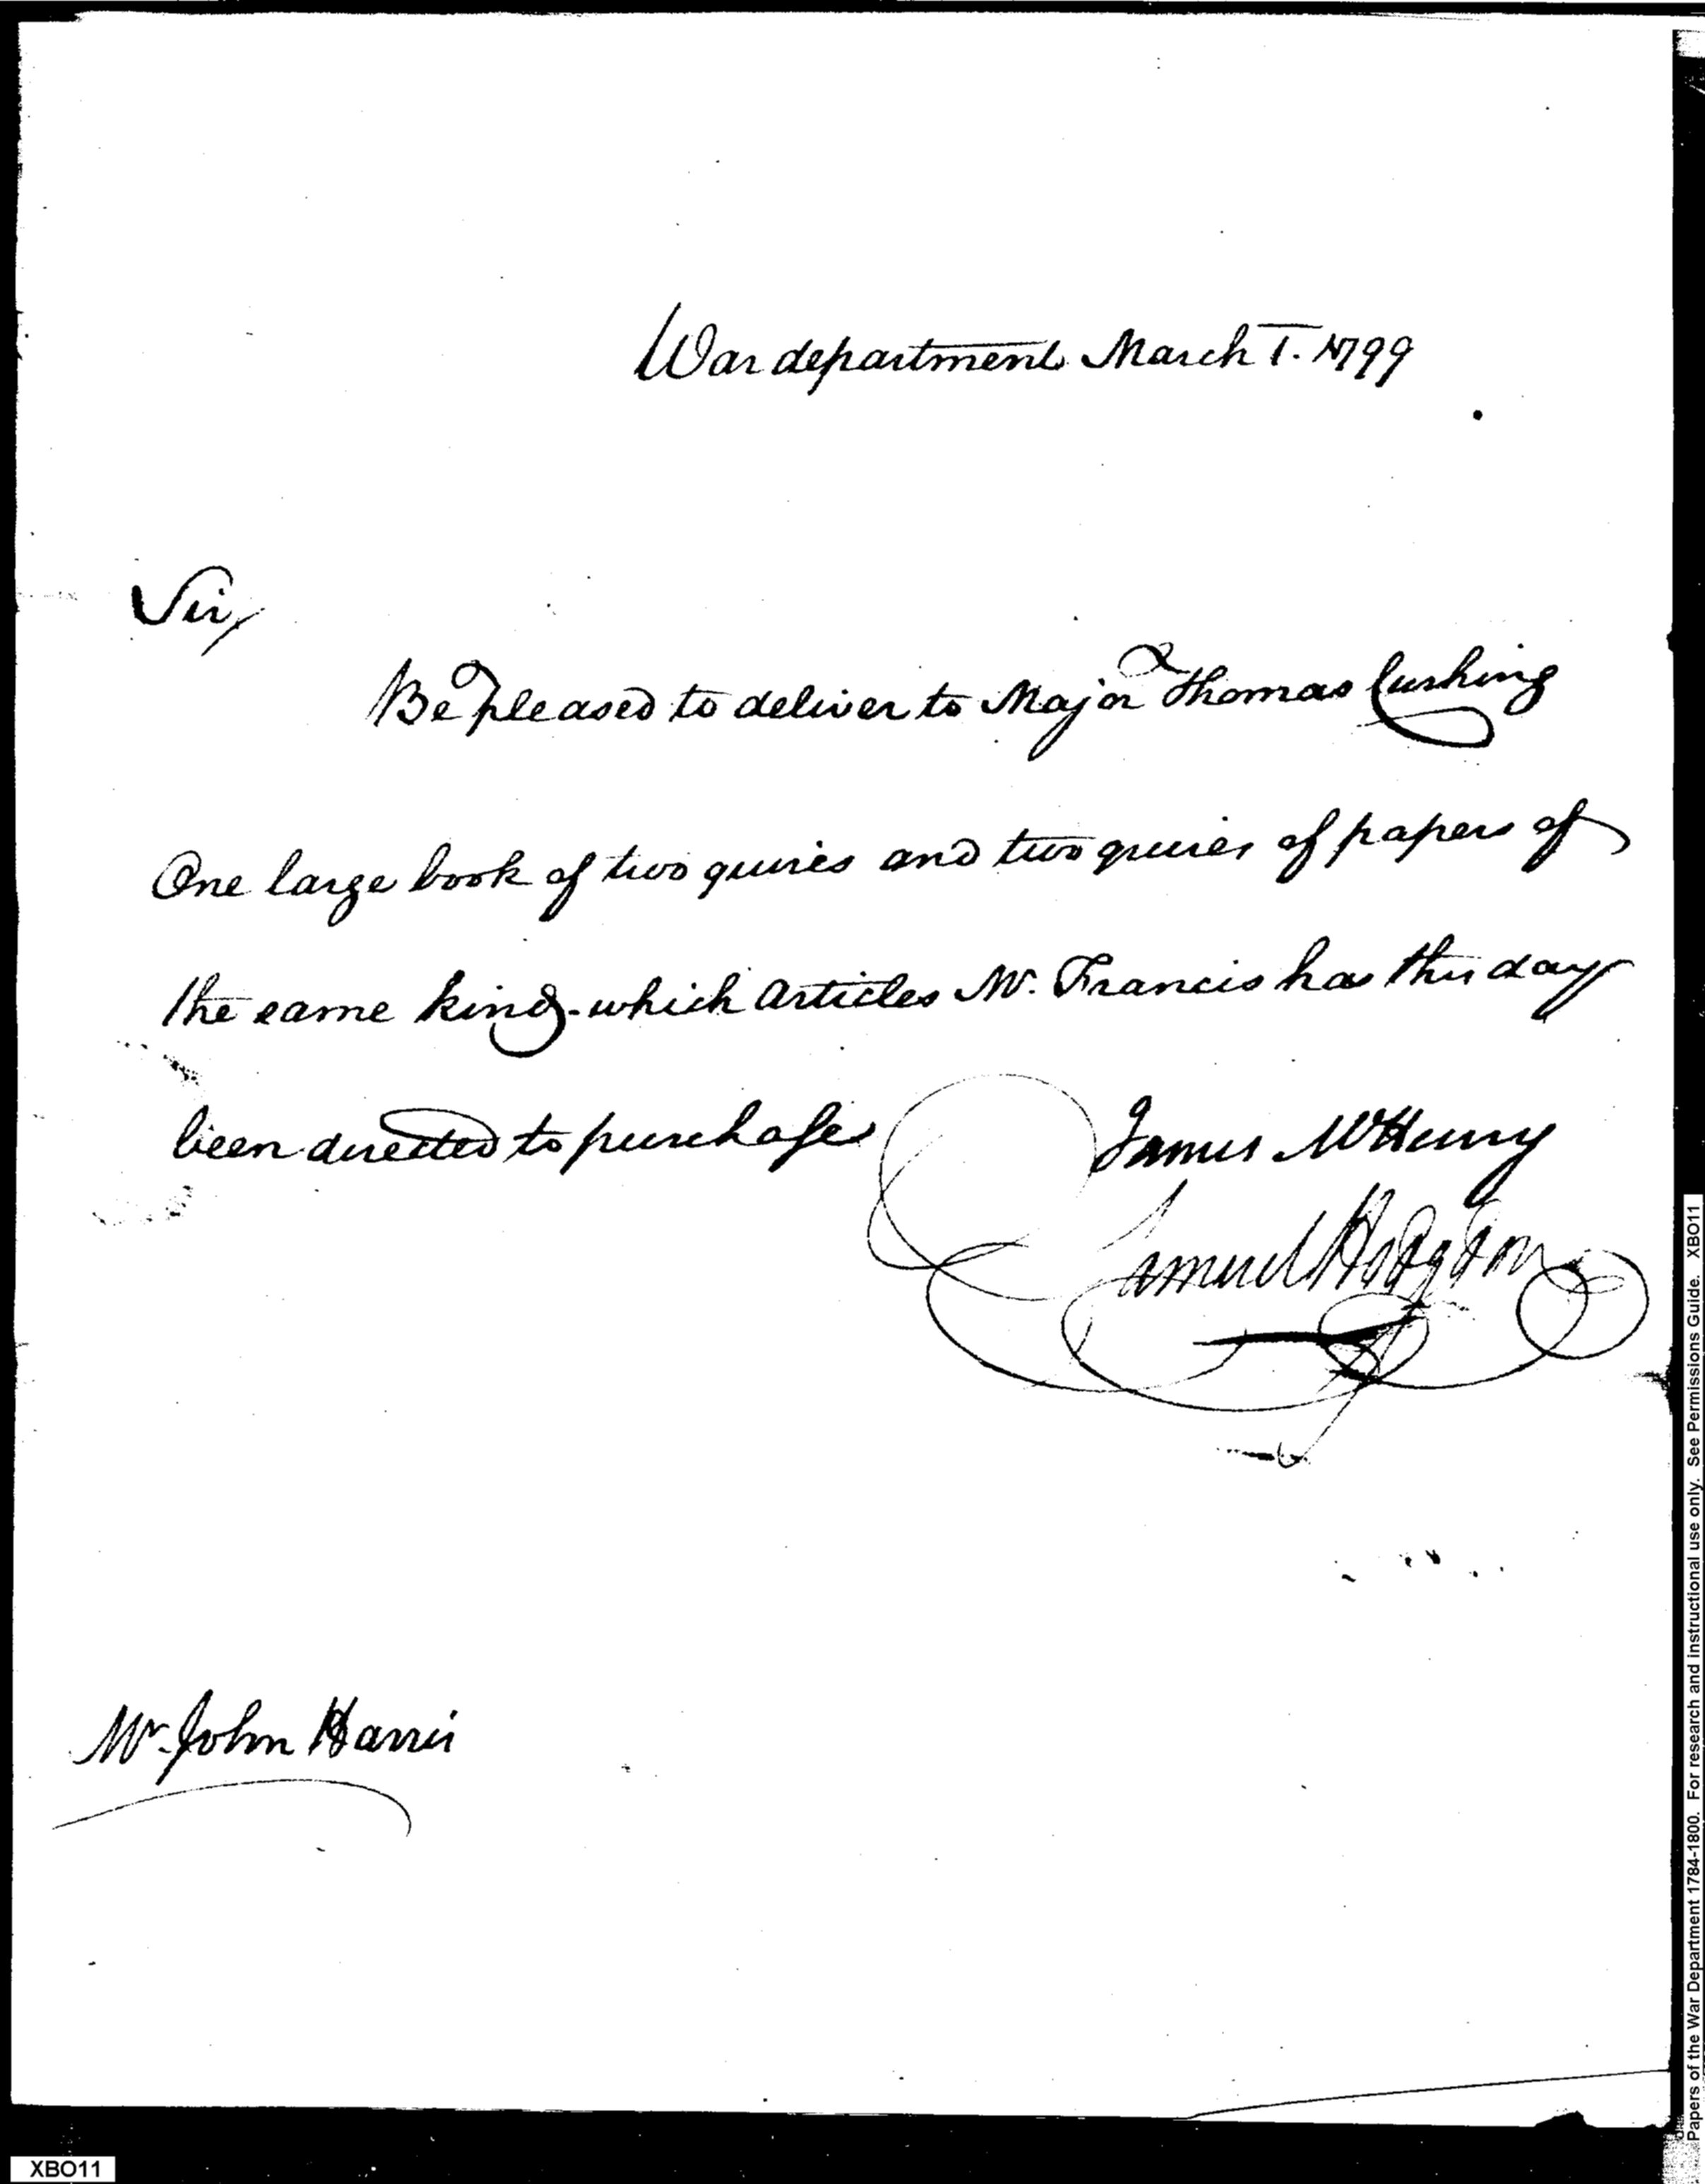 War department March 1. 1799
Sir,
Be pleased to deliver to Major Thomas Cushing
One large book of two quires and two quires of papers of
the same kind. which articles Mr. Francis has this day
been directed to purchase
James McHenry
Samuel Hodgdon
Mr. John Harris
XBO11
Papers of the War Department 1784-1800. For research and instructional use only. See Permissions Guide. XBO11